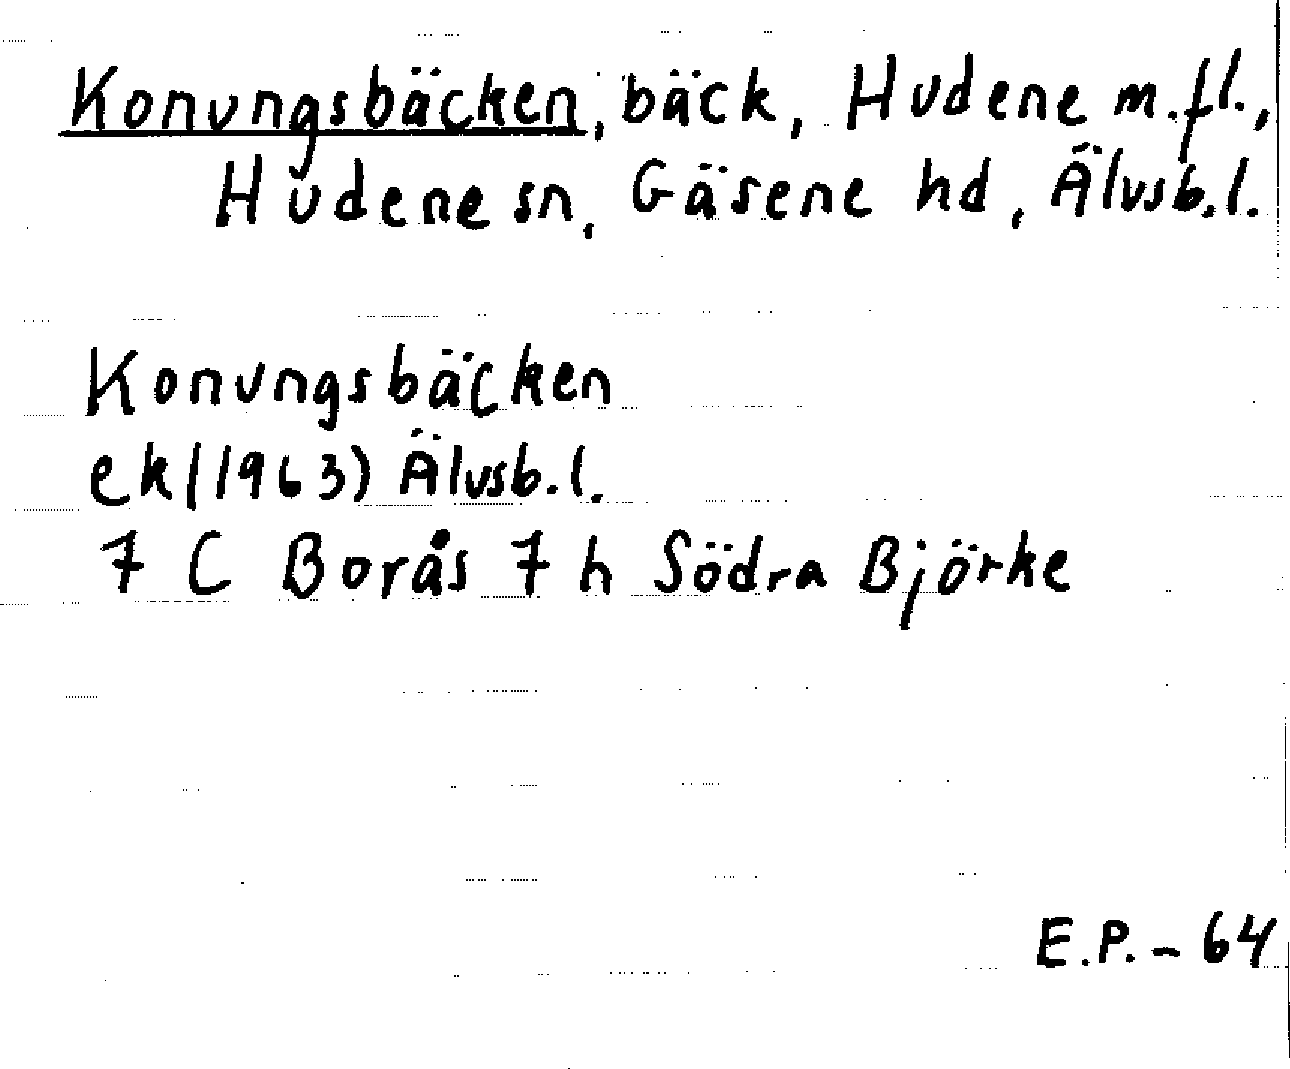 Konungsbäcken, bäck, Hudene m.fl.,
Hudene sn, Gäsene hd, Älvsb.l.
Konungsbäcken
ek(1963) Älvsb.l.
7 C Borås 7 h Södra Björke
E.P. - 64